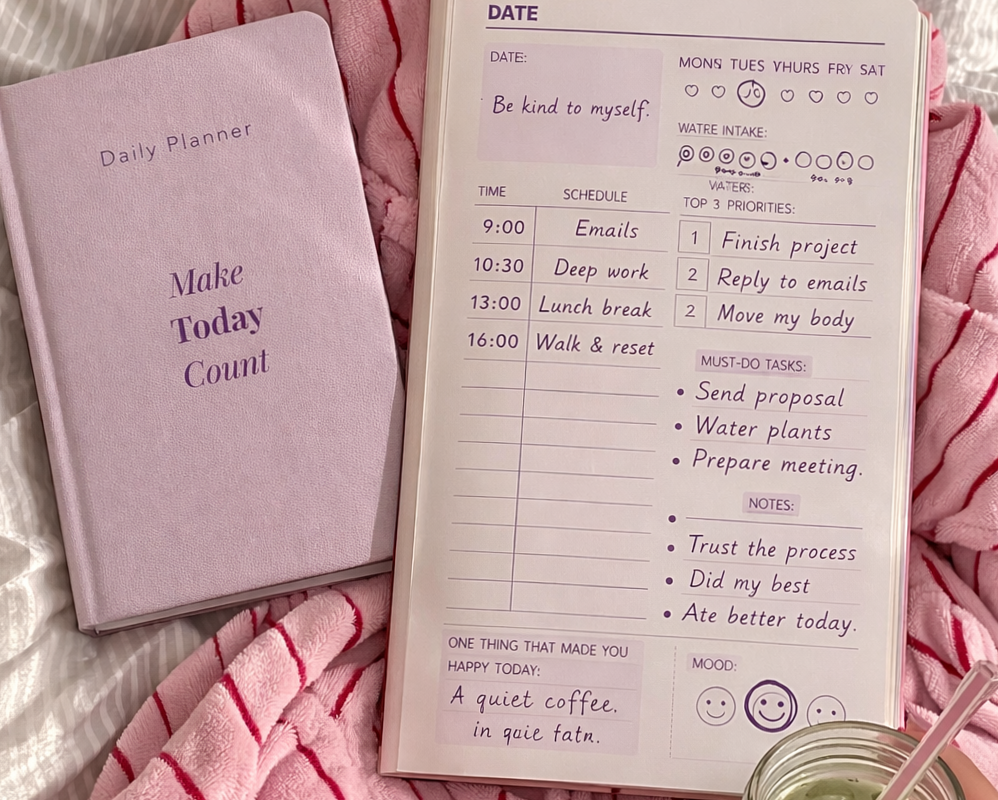 Daily Planner
Make
Today
Count
DATE
DATE:
Be kind to myself.
MONS TUES YHURS FRY SAT
WATRE INTAKE:
WATERS:
TIME SCHEDULE
9:00 Emails
10:30 Deep work
13:00 Lunch break
16:00 Walk & reset
TOP 3 PRIORITIES:
1 Finish project
2 Reply to emails
2 Move my body
MUST-DO TASKS:
• Send proposal
• Water plants
• Prepare meeting.
NOTES:
•
• Trust the process
• Did my best
• Ate better today.
ONE THING THAT MADE YOU
HAPPY TODAY:
A quiet coffee.
in quie fatn.
MOOD: